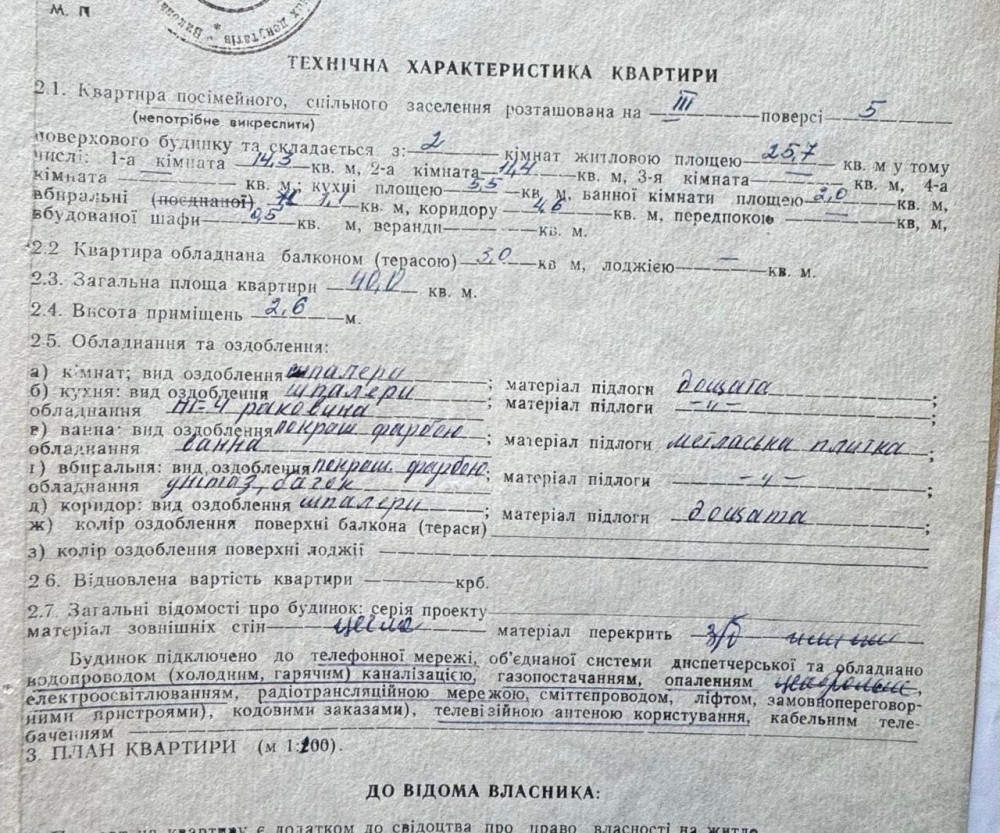 М. П
ТЕХНІЧНА ХАРАКТЕРИСТИКА КВАРТИРИ
2.1. Квартира посімейного, спільного заселення розташована на III поверсі 5
(непотрібне викреслити)
поверхового будинку та складається з: 2 кімнат житловою площею 25,7 кв. м у тому
числі: 1-а кімната 14,3 кв. м, 2-а кімната 11,4 кв. м, 3-я кімната — кв. м, 4-а
кімната — кв. м, кухні площею 5,5 кв. м, ванної кімнати площею 2,0 кв. м,
вбиральні (поєднаної) 1,1 кв. м, коридору 4,6 кв. м, передпокою — кв. м,
вбудованої шафи 0,5 кв. м, веранди — кв. м.
2.2 Квартира обладнана балконом (терасою) 3,0 кв м, лоджією — кв. м.
2.3. Загальна площа квартири 40,0 кв. м.
2.4. Висота приміщень 2,6 м.
2 5. Обладнання та оздоблення:
а) кімнат; вид оздоблення шпалери; матеріал підлоги дощата;
б) кухня: вид оздоблення шпалери; матеріал підлоги -"-;
обладнання ПГ-4 раковина
в) ванна: вид оздоблення покраш фарбою; матеріал підлоги метласька плитка;
обладнання ванна
г) вбиральня: вид оздоблення покраш. фарбою; матеріал підлоги -"-;
обладнання унітаз, бачок
д) коридор: вид оздоблення шпалери; матеріал підлоги дощата;
ж) колір оздоблення поверхні балкона (тераси)
з) колір оздоблення поверхні лоджії
2 6. Відновлена вартість квартири — крб.
2.7. Загальні відомості про будинок: серія проекту
матеріал зовнішніх стін цегла матеріал перекрить з/б
Будинок підключено до телефонної мережі, об'єднаної системи диспетчерської та обладнано
водопроводом (холодним, гарячим) каналізацією, газопостачанням, опаленням
електроосвітлюванням, радіотрансляційною мережою, сміттєпроводом, ліфтом, замовнопереговор-
ними пристроями), кодовими заказами), телевізійною антеною користування, кабельним теле-
баченням
3. ПЛАН КВАРТИРИ (м 1:100).
ДО ВІДОМА ВЛАСНИКА:
на квартиру є додатком до свідоцтва про право власності на житло